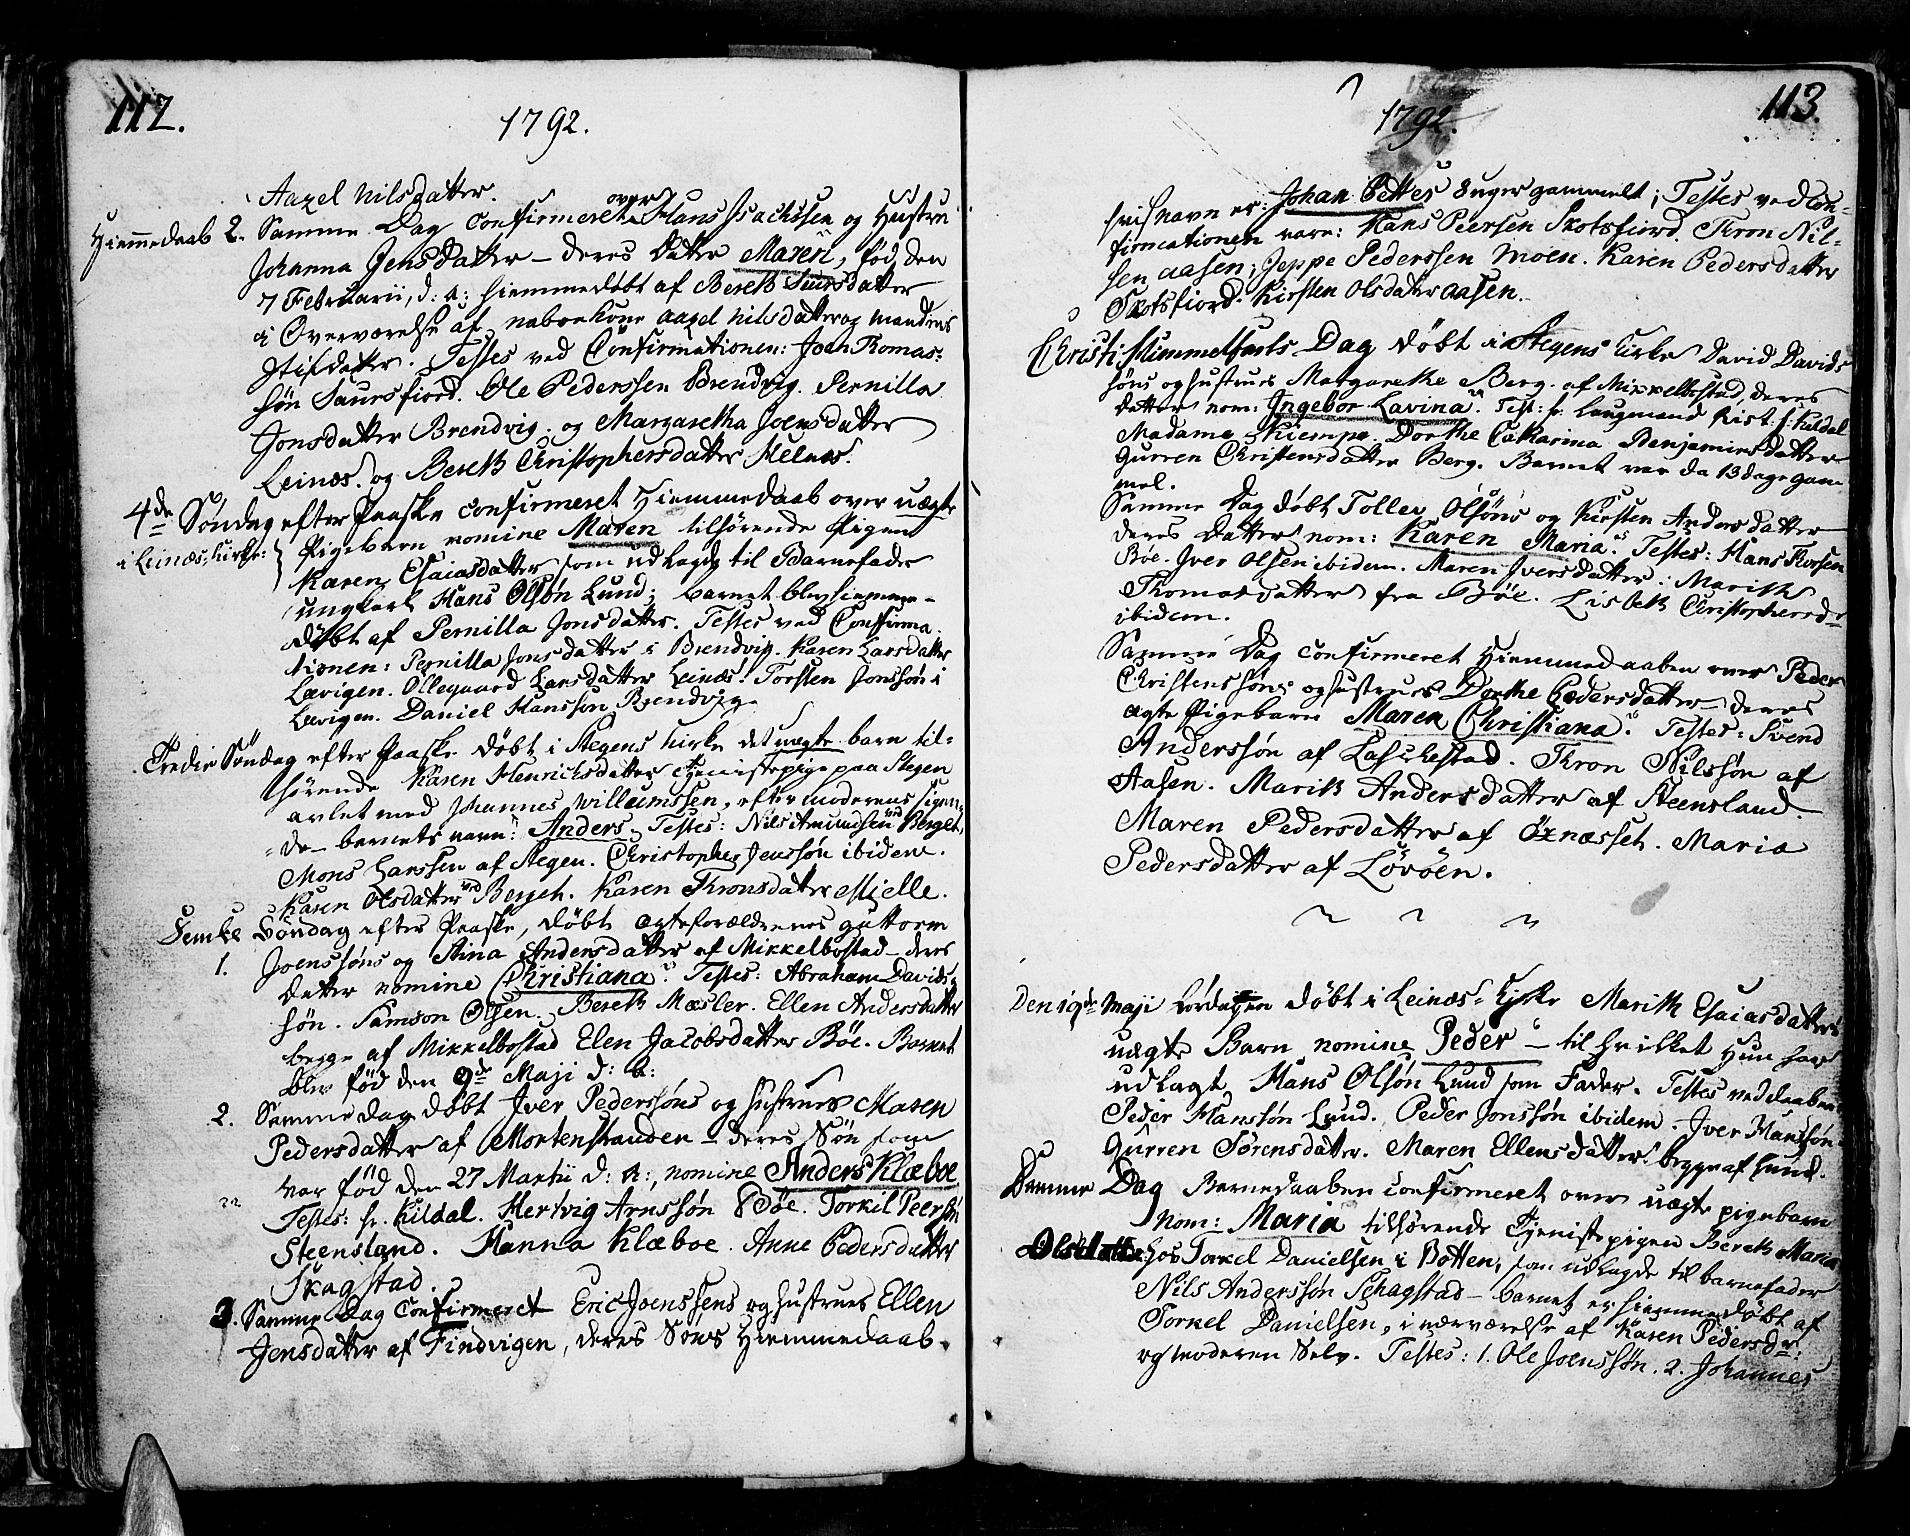 112.
1792.
Aagel Nilsdatter.
Hiemmedaab 2. Samme Dag confirmeret over Hans Isachssen og Hustru
Johanna Jensdatter – deres Datter Maren, fød den
7 Februarii, d: a: hiemmedøbt af Bereth Siursdatter
i Overværelse af naboekone Aagel Nilsdatter og mandens
Stifdatter. Testes ved Confirmationen: Joen Thomas-
søn Saursfiord. Ole Pederssen Brendvig. Pernilla
Jonsdatter Brendvig. og Margaretha Joensdatter
Leines. og Bereth Christophersdatter Helnæs.
4de Søndag efter Paaske confirmeret Hiemmedaab over uægte
i Leinæs-Kirke: Pigebarn nomine Maren tilhørende Pigen
Karen Esaiasdatter som udlagde til Barnefader
ungkarl Hans Olsøn Lund; barnet blev hiemme-
døbt af Pernilla Jonsdatter. Testes ved Confirma-
tionen: Pernilla Jonsdatter i Brendvig. Karen Larsdatter
Løvigen. Ollegaard Larsdatter Leinæs. Torsten Jonssøn i
Løvigen. Daniel Hanssøn Brendvig.
Tredie Søndag efter Paaske døbt i Stegens Kirke det uægte barn til-
hørende Karen Henrichsdatter tienistepige paa Stegen
avlet med Johannes Willumssen, efter moderens sigen-
de – barnets navn: Anders. Testes: Nils Amundsen ved Berget,
Mons Larssen af Stegen. Christopher Jenssøn ibidem.
Karen Olsdatter ved Berget. Karen Thronsdatter Mielle.
Femte Søndag efter Paaske, døbt ægteforældrenes Guttorm
1. Joenssøns og Stina Andersdatter af Mikkelbostad – deres
datter nomine Christiana. Testes: Abraham Davids-
søn. Samson Olsen. Bereth Mæsler. Ellen Andersdatter
begge af Mikkelbostad Elen Jacobsdatter Bøe. Barnet
blev fød den 9de Maji d: a:
2. Samme dag døbt Iver Pederssøns og Hustrues Maren
Pedersdatter af Mortenstranden – deres Søn som
var fød den 27 Martii d: a:, nomine Anders Klæboe
Testes: hr. Kildal. Hertvig Arnssøn Bøe. Torkil Peersøn
Steensland. Hanna Klæboe. Anne Pedersdatter
Skagstad.
3. Samme Dag confirmeret Eric Joenssens og hustrues Ellen
Jensdatter af Findvigen, deres Søns Hiemmedaab.
113.
1792.
hvis navn er: Johan Petter 8 uger gammelt; Testes ved Con-
firmationen vare: Hans Peersen Skotsfiord. Thron Nil-
sen Aasen; Jeppe Pederssen Moen. Karen Pedersdatter
Skotsfiord. Kirsten Olsdatter Aasen.
Christi Himmelfarts Dag døbt i Stegens Kirke David Davids
søns og hustrues Margarethe Berg. af Mikkelbostad, deres
datter nom: Ingebor Lavina. Test: hr. Laugmand Rist. hr. Kildal
Madame Kiempe. Dorthe Catharina Benjaminsdatter
Gurren Christensdatter Berg. Barnet var da 13 dage gam
mel.
Samme Dag døbt Toller Olsøns og Kirsten Andersdatter
deres Datter nom: Karen Maria. Testes: Hans Korsen
Bøe. Iver Olsen ibidem. Maren Iversdatter. Marith
Thomasdatter fra Bøe. Lisbeth Christophersdr
ibidem.
Samme Dag confirmeret Hiemmedaaben over Peder
Christenssøns og hustrues Dorthe Pedersdatter deres
ægte Pigebarn Maren Christiana. Testes: Svend
Anderssøn af Laschestad. Thron Nilssøn af
Aasen. Marith Andersdatter af Steensland.
Maren Pedersdatter af Øxnæsset. Maria
Pedersdatter af Løvøen.
Den 19de Maji Lørdagen døbt i Leinæs-Kirke Marith Esaiasdatters
uægte Barn nomine Peder – til hvilket Hun har
udlagt Hans Olsøn Lund som Fader. Testes ved daaben:
Peder Hanssøn Lund. Peder Jonssøn ibidem. Iver Hanssøn
Gurren Sørensdatter. Maren Ellensdatter begge af Lund.
Samme Dag Barnedaaben confirmeret over uægte pigebarn
Nom: Maria tilhørende Tjenistepigen Bereth Maria
Olsdatter hos Torkel Danielsen i Botten, som udlagde til barnefader
Nils Anderssøn Schagstad – barnet er hiemmedøbt af
Torkel Danielsen, i nærværelse af Karen Pedersdr.
og moderen Selv. Testes: 1. Ole Joenssøn. 2. Johannes